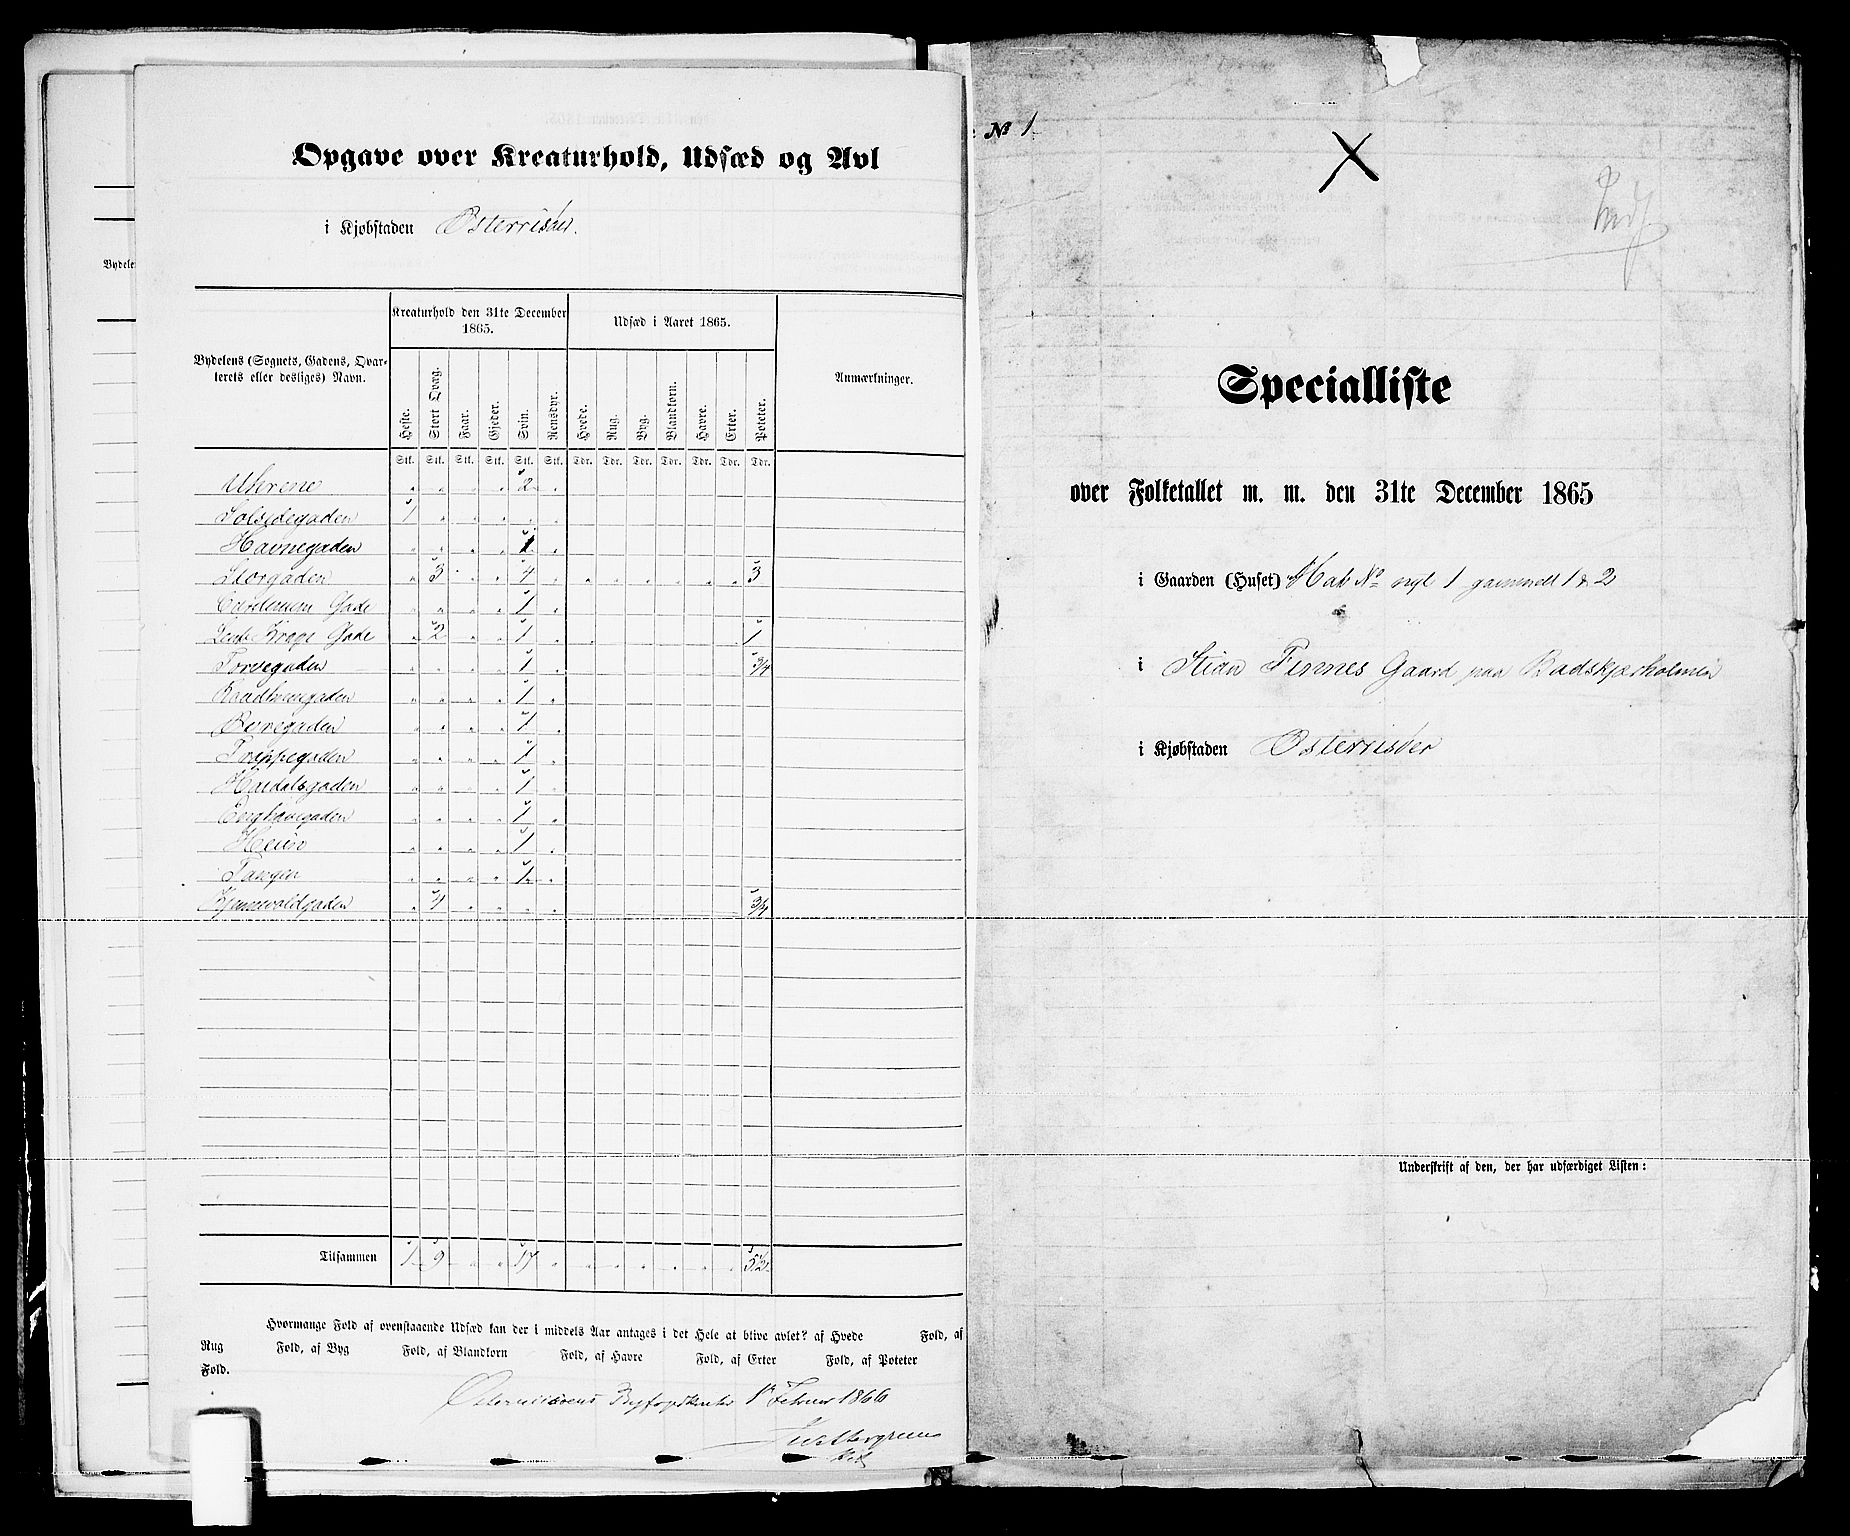 Opgave over Kreaturhold, Udsæd og Avl
i Kjøbstaden Østerrisøer.
Bydelens (Sognets, Gadens, Qvarterets eller desliges) Navn.
Kreaturhold den 31te December 1865.
Udsæd i Aaret 1865.
Anmærkninger.
Heste. Stort Qvæg. Faar. Gjeder. Svin. Rensdyr. Hvede. Rug. Byg. Blandkorn. Havre. Erter. Poteter.
Stk. Stk. Stk. Stk. Stk. Stk. Tdr. Tdr. Tdr. Tdr. Tdr. Tdr. Tdr.
" " " " 2 "
Solsidegaden 1 " " " " "
Havnegaden " " " " 1 "
Storgaden " 3 " " 4 " " " " " " " 3
Carstensens Gade " " " " 1 "
Krags Gade " 2 " " 1 " " " 1
Torvegaden " " " " 1 " 3/4
Raadhusgaden " " " " 1 "
" " " " 1 "
Treppegaden " " " " 1 "
Hasdalsgaden " " " " 1 "
" " " " 1 "
" " " " 1 "
Tangen " " " " 1 "
" 4 " " " " 3/4
Tilsammen 1 9 " " 17 " " " " " " " 5 1/2
Hvormange Fold af ovenstaaende Udsæd kan der i middels Aar antages i det Hele at blive avlet? af Hvede Fold, af
Rug Fold, af Byg Fold, af Blandkorn Fold, af Havre Fold, af Erter Fold, af Poteter
Fold.
Februar 1866
Bydelen
№ 1
Specialliste
over Folketallet m. m. den 31te December 1865
i Gaarden (Huset) Mat № nyt 1 gammelt 1 & 2
i Stian Finnes Gaard paa Badskjærholmen
i Kjøbstaden Østerrisøer
Underskrift af den, der har udfærdiget Listen: